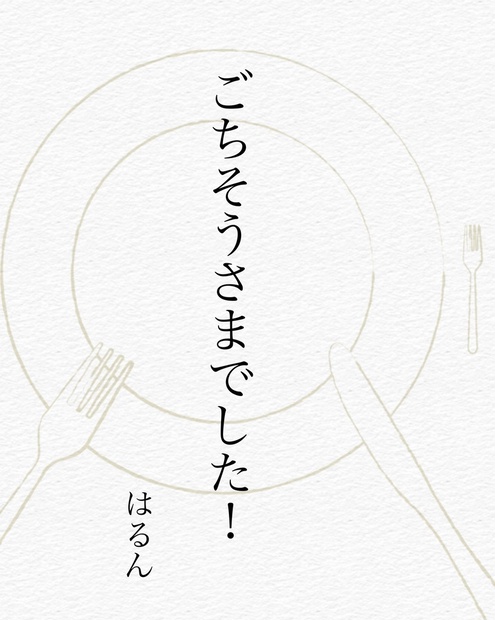 ごちそうさまでした！
はるん